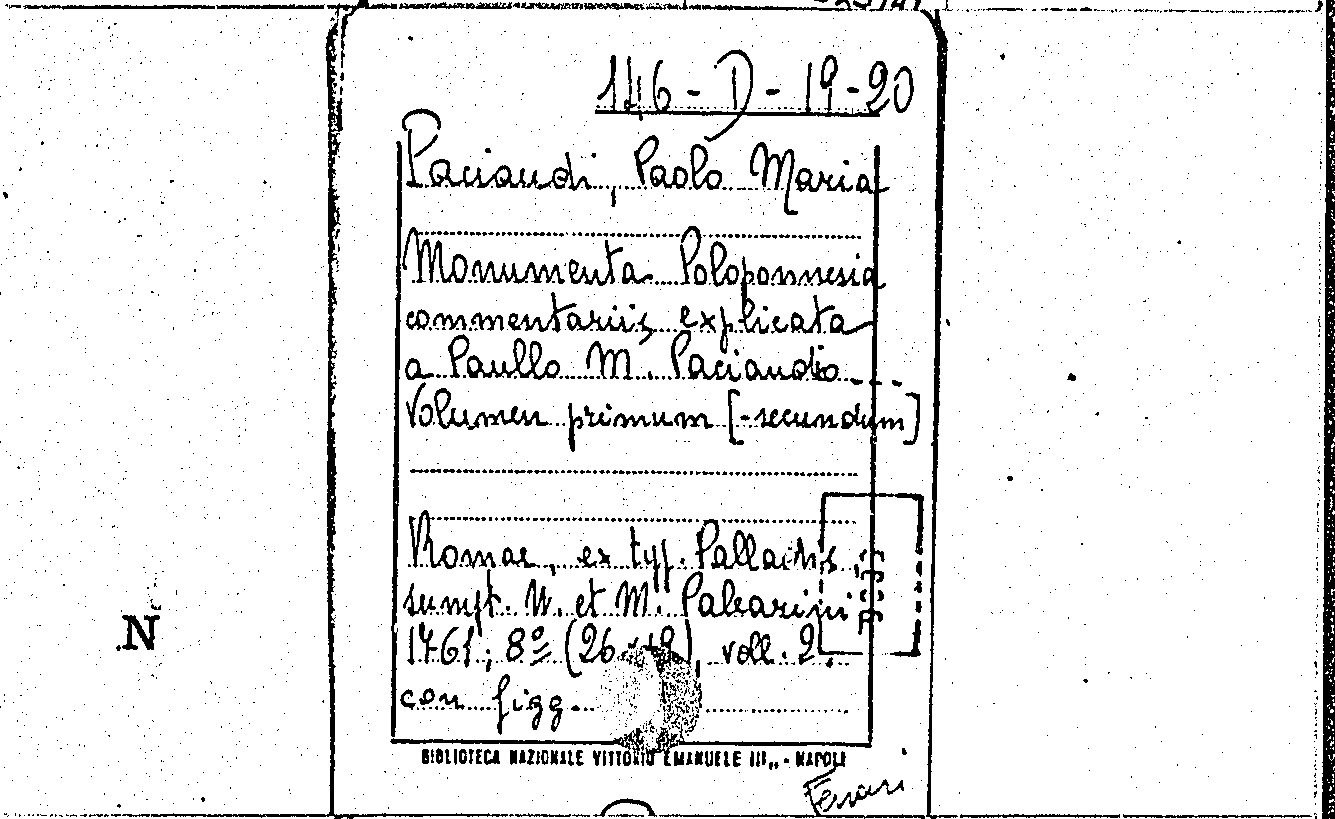 146 - D - 19-20
Paciaudi, Paolo Maria
Monumenta Peloponnesia
commentariis explicata
a Paullo M. Paciaudio ....
Volumen primum [-secundum]
Romae, ex typ. Palladis,
sumpt. N. et M.
1761; 8º voll. 2.
con figg.
BIBLIOTECA NAZIONALE VITTORIO EMANUELE III„ - NAPOLI
N
Ferrari